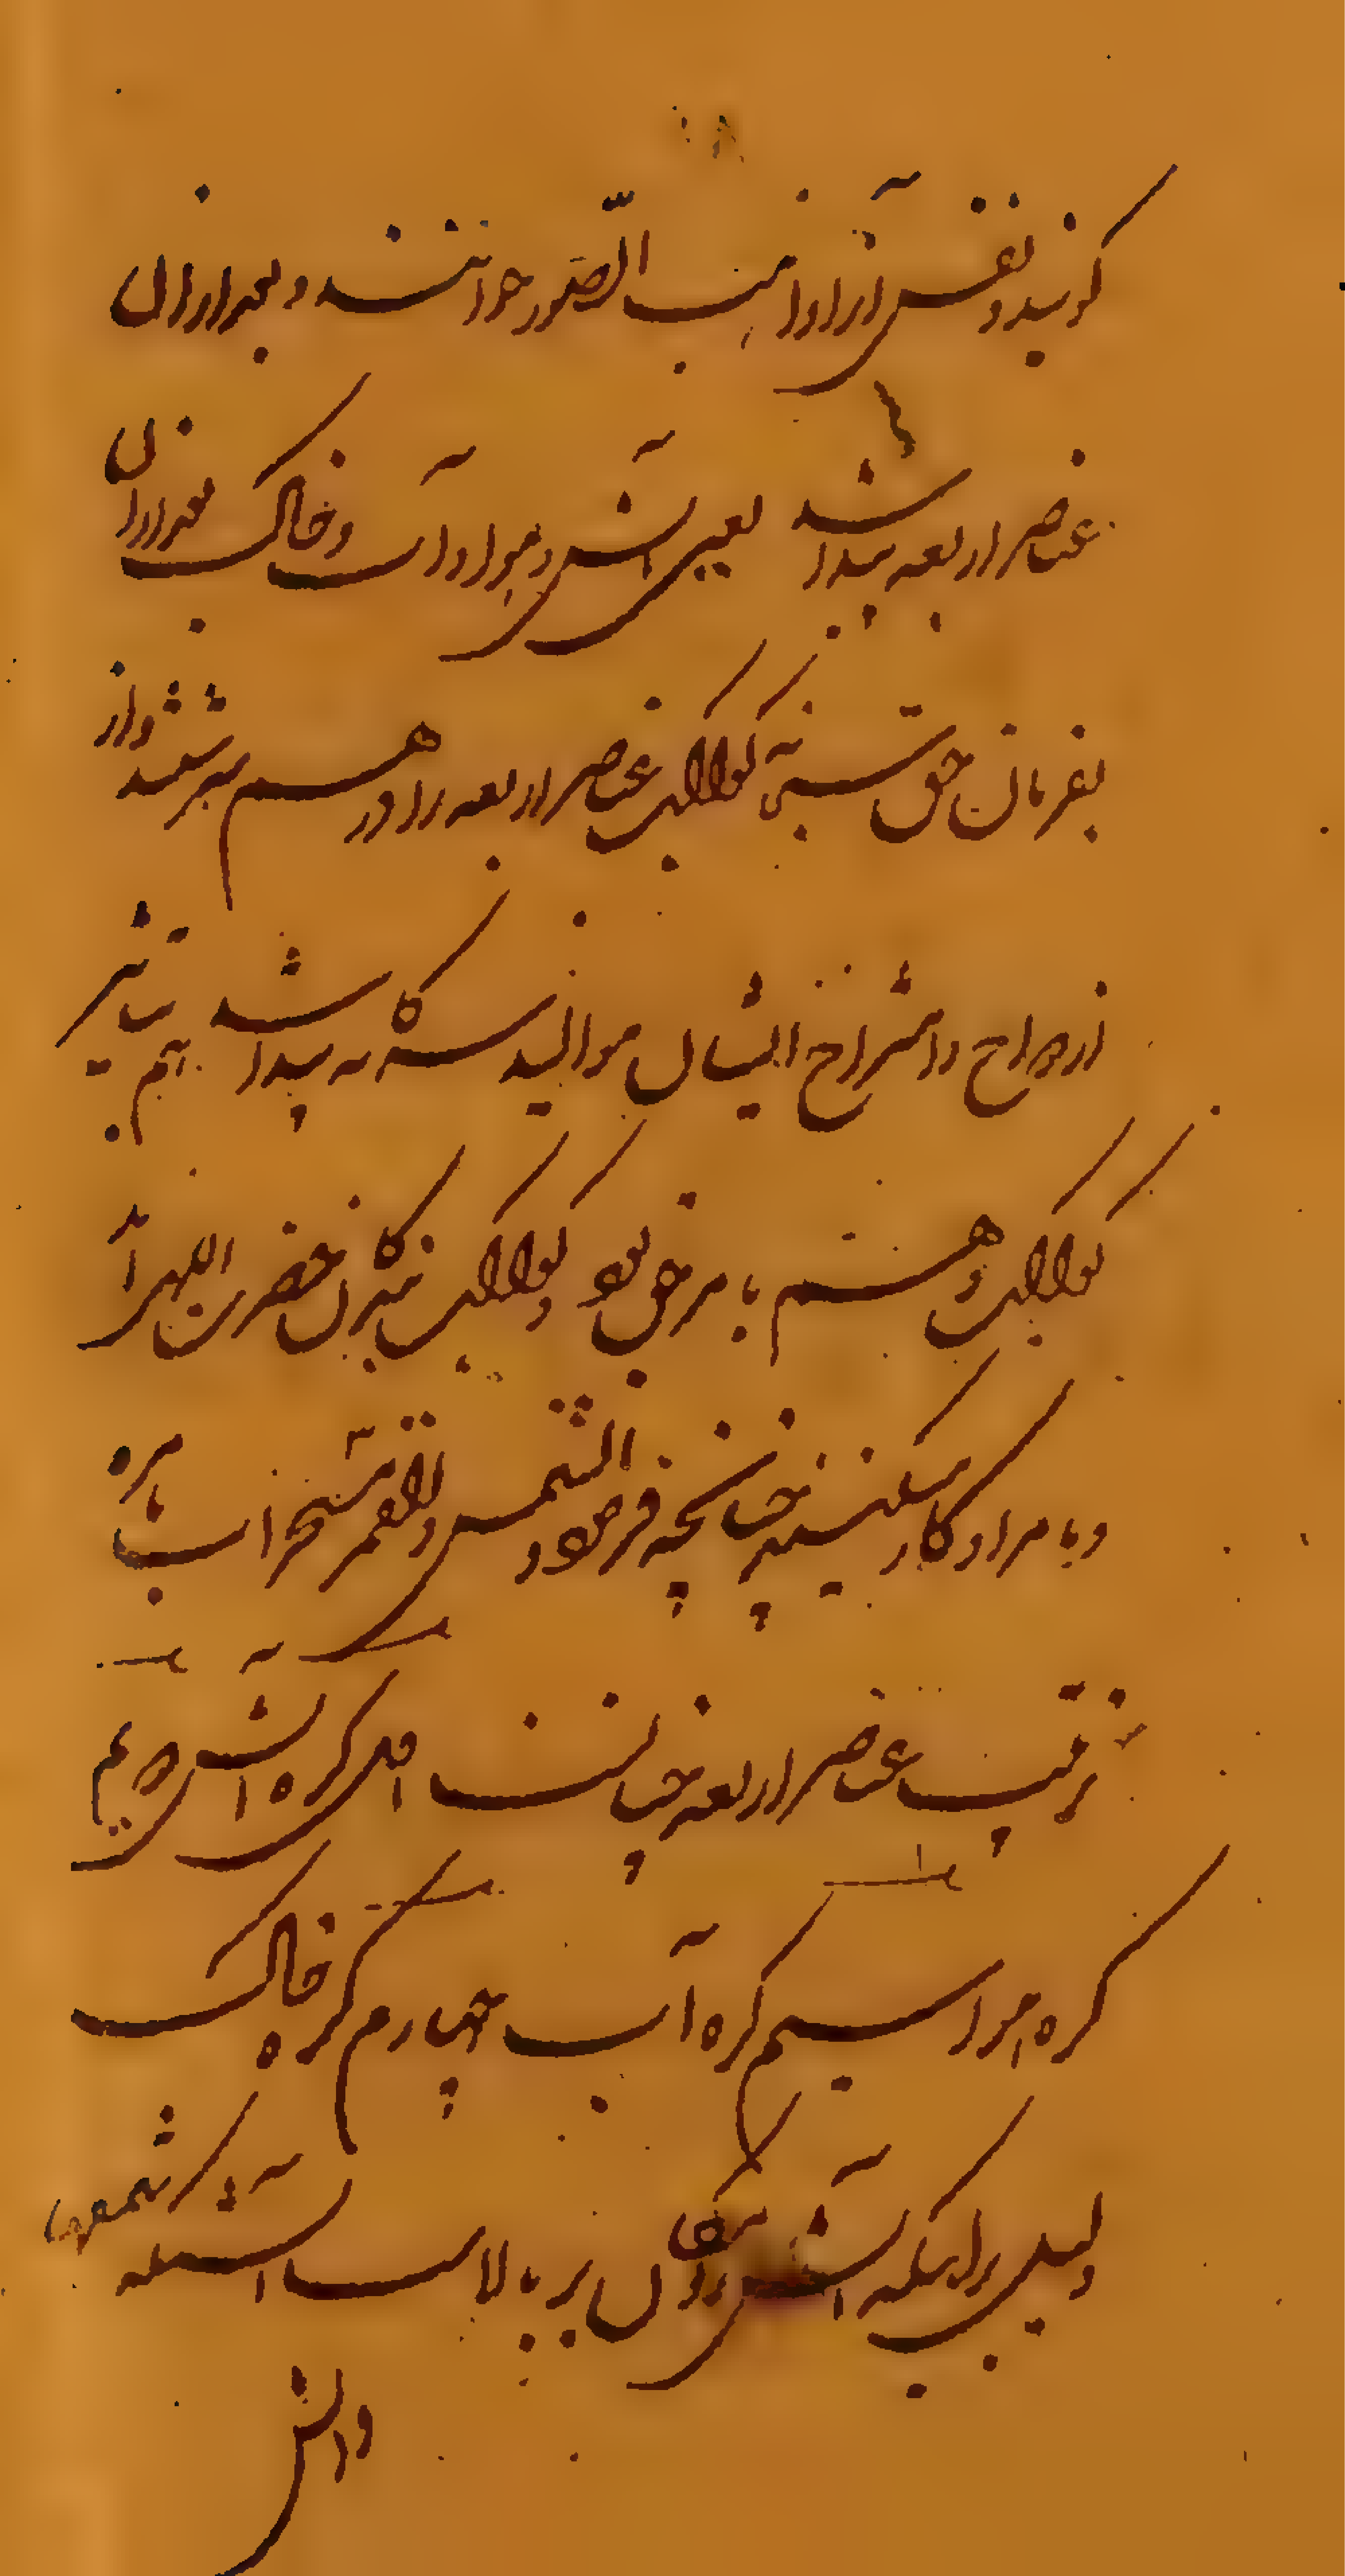 گویند و نفس آنرا واهب الصّور خوانند و بعد از آن
عناصر اربعه پیدا شد یعنی آتش و هوا و آب و خاک بعد از آن
بفرمان حق کواکب عناصر اربعه را در هم سرشتند و از
ازدواج و امتزاج ایشان موالید سه گانه پیدا شد هم بتأثیر
کواکب و هم بامر حق بود و کواکب بندگان حضرت الهی‌اند
و بامر او کار میکنند چنانچه فرمود و الشمس و القمر مسخرات بامره
ترتیب عناصر اربعه چنانست اول کره آتش دویم
کره هوا سیم کره آب چهارم کره خاک
دلیل برینکه آتش بر بالاست آنست که شمعها
واتش